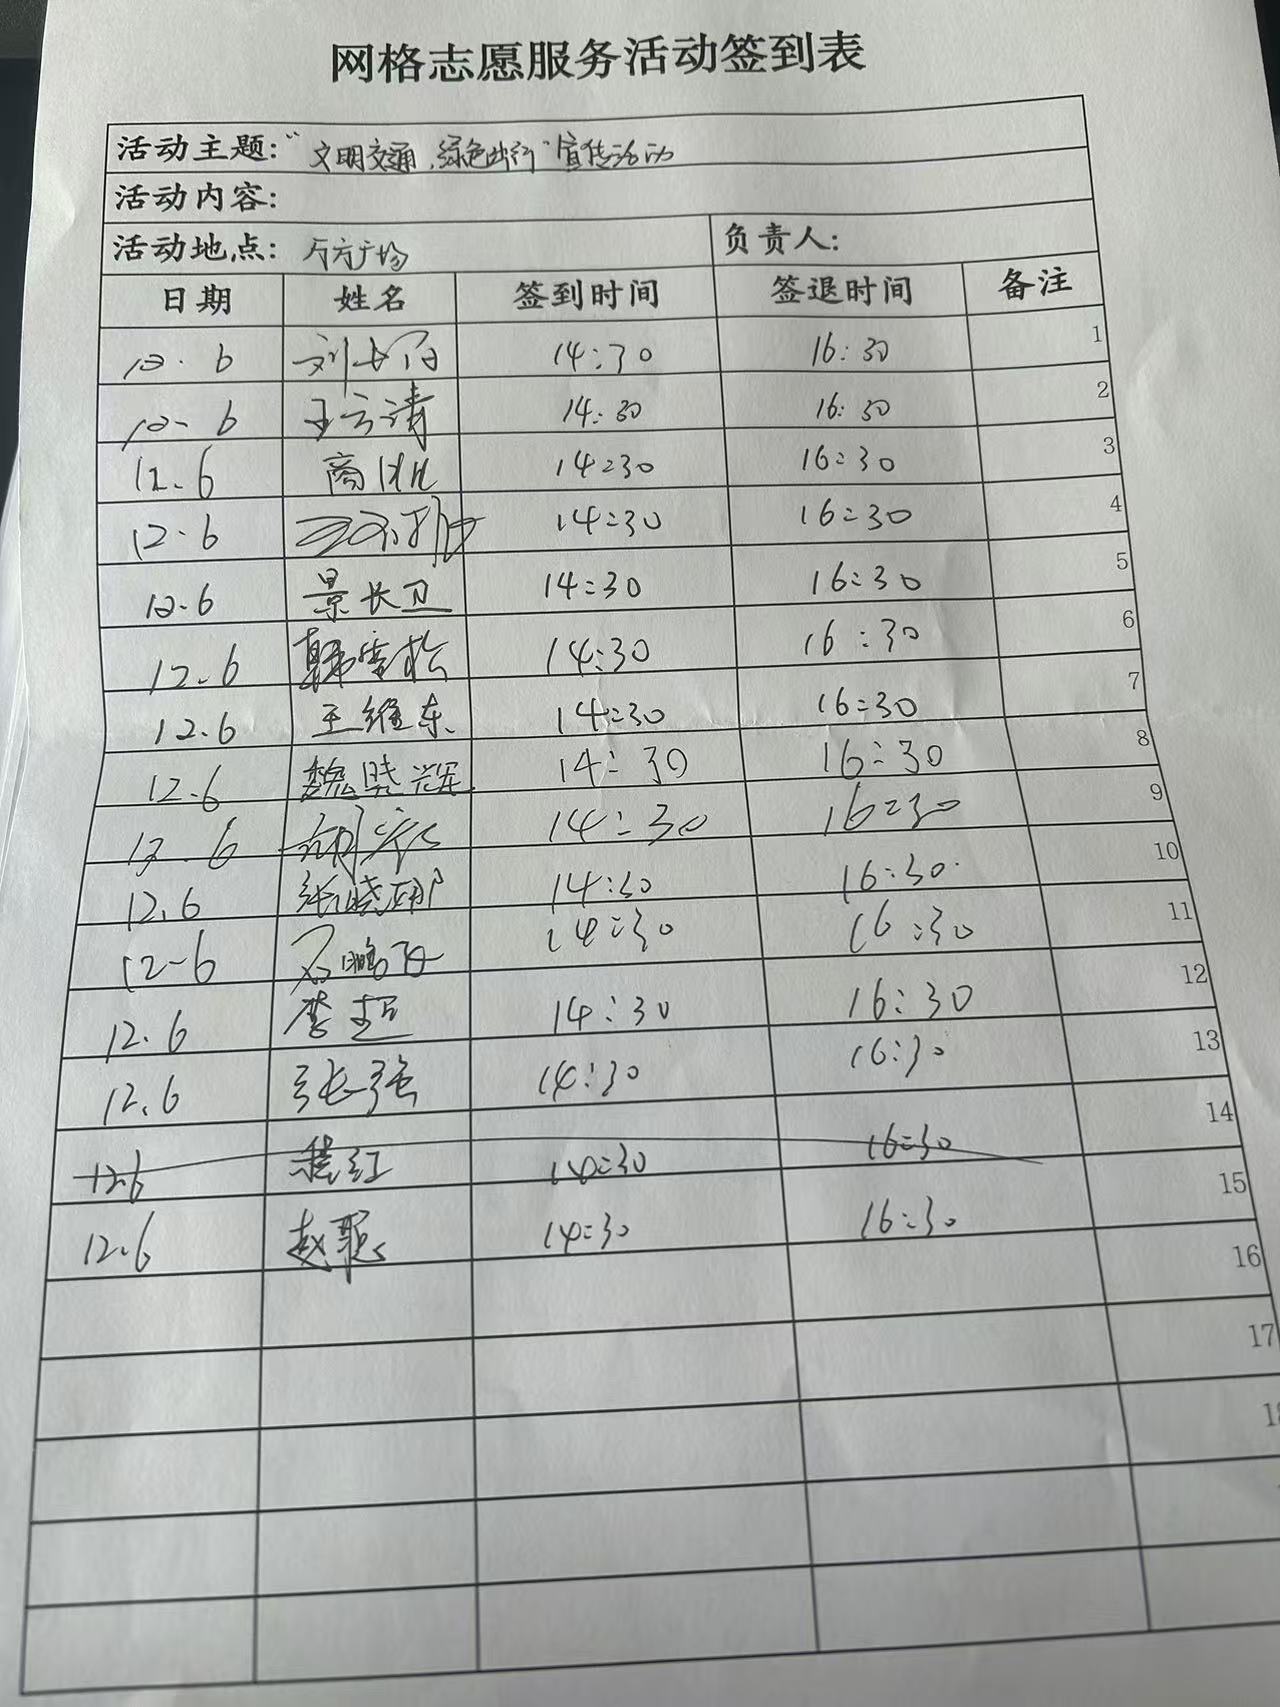 网格志愿服务活动签到表
活动主题:“文明交通,绿色出行”宣传活动
活动内容:
活动地点: 万方广场 负责人:
日期 姓名 签到时间 签退时间 备注
12.6 14:30 16:30 1
12-6 王云清 14:30 16:30 2
12.6 商 14:30 16:30 3
12.6 14:30 16:30 4
12.6 景长卫 14:30 16:30 5
12.6 韩雪松 14:30 16:30 6
12.6 王维东 14:30 16:30 7
12.6 魏晓辉 14:30 16:30 8
12.6 胡 14:30 16:30 9
12.6 张晓 14:30 16:30 10
12-6 石鹏飞 14:30 16:30 11
12.6 李超 14:30 16:30 12
12.6 张强 14:30 16:30 13
12.6 红 14:30 16:30 14
12.6 赵聪 14:30 16:30 15
16
17